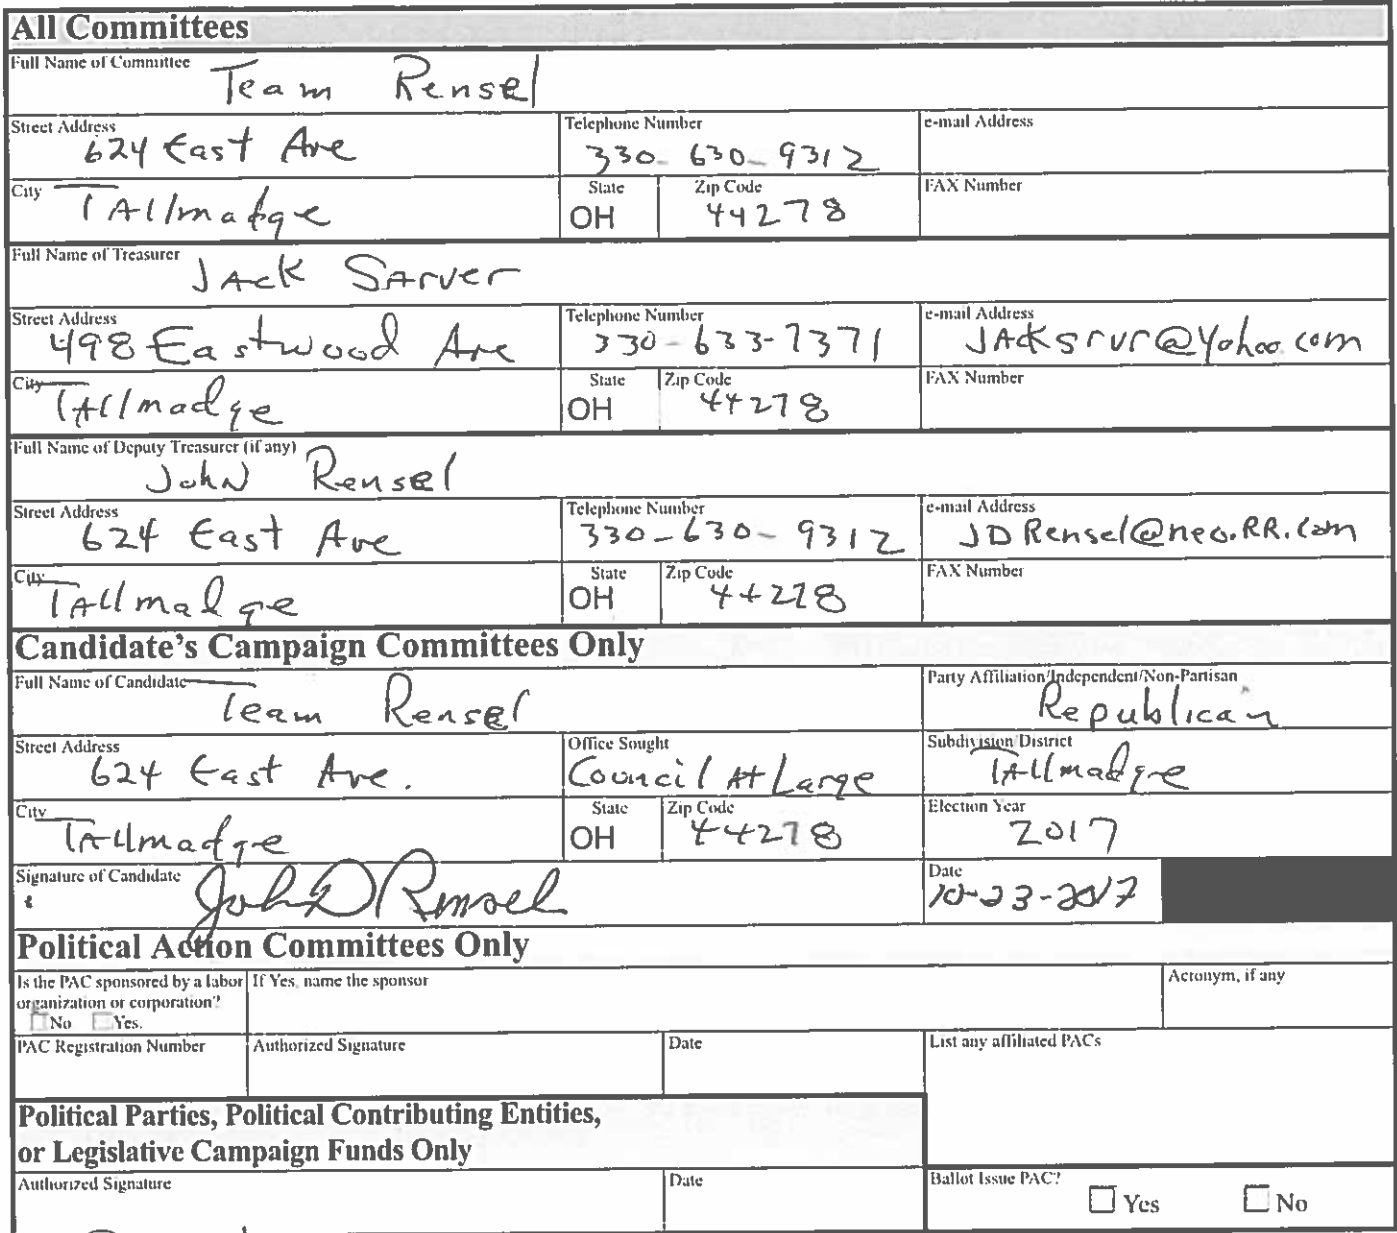 All Committees
Full Name of Committee Team Rensel
Street Address 624 East Ave Telephone Number 330-630-9312 e-mail Address
City TAllmadge State OH Zip Code 44278 FAX Number
Full Name of Treasurer JAck SArver
Street Address 498 Eastwood Ave Telephone Number 330-633-7371 e-mail Address JAcksrvr@Yahoo.com
City TAllmadge State OH Zip Code 44278 FAX Number
Full Name of Deputy Treasurer (if any) JohN Rensel
Street Address 624 East Ave Telephone Number 330-630-9312 e-mail Address JDRensel@neo.RR.com
City TAllmadge State OH Zip Code 44278 FAX Number
Candidate's Campaign Committees Only
Full Name of Candidate Team Rensel Party Affiliation/Independent/Non-Partisan Republican
Street Address 624 East Ave. Office Sought Council At Large Subdivision/District TAllmadge
City TAllmadge State OH Zip Code 44278 Election Year 2017
Signature of Candidate John D Rensel Date 10-23-2017
Political Action Committees Only
Is the PAC sponsored by a labor If Yes, name the sponsor Acronym, if any
organization or corporation?
No Yes.
PAC Registration Number Authorized Signature Date List any affiliated PACs
Political Parties, Political Contributing Entities,
or Legislative Campaign Funds Only
Authorized Signature Date Ballot Issue PAC? Yes No